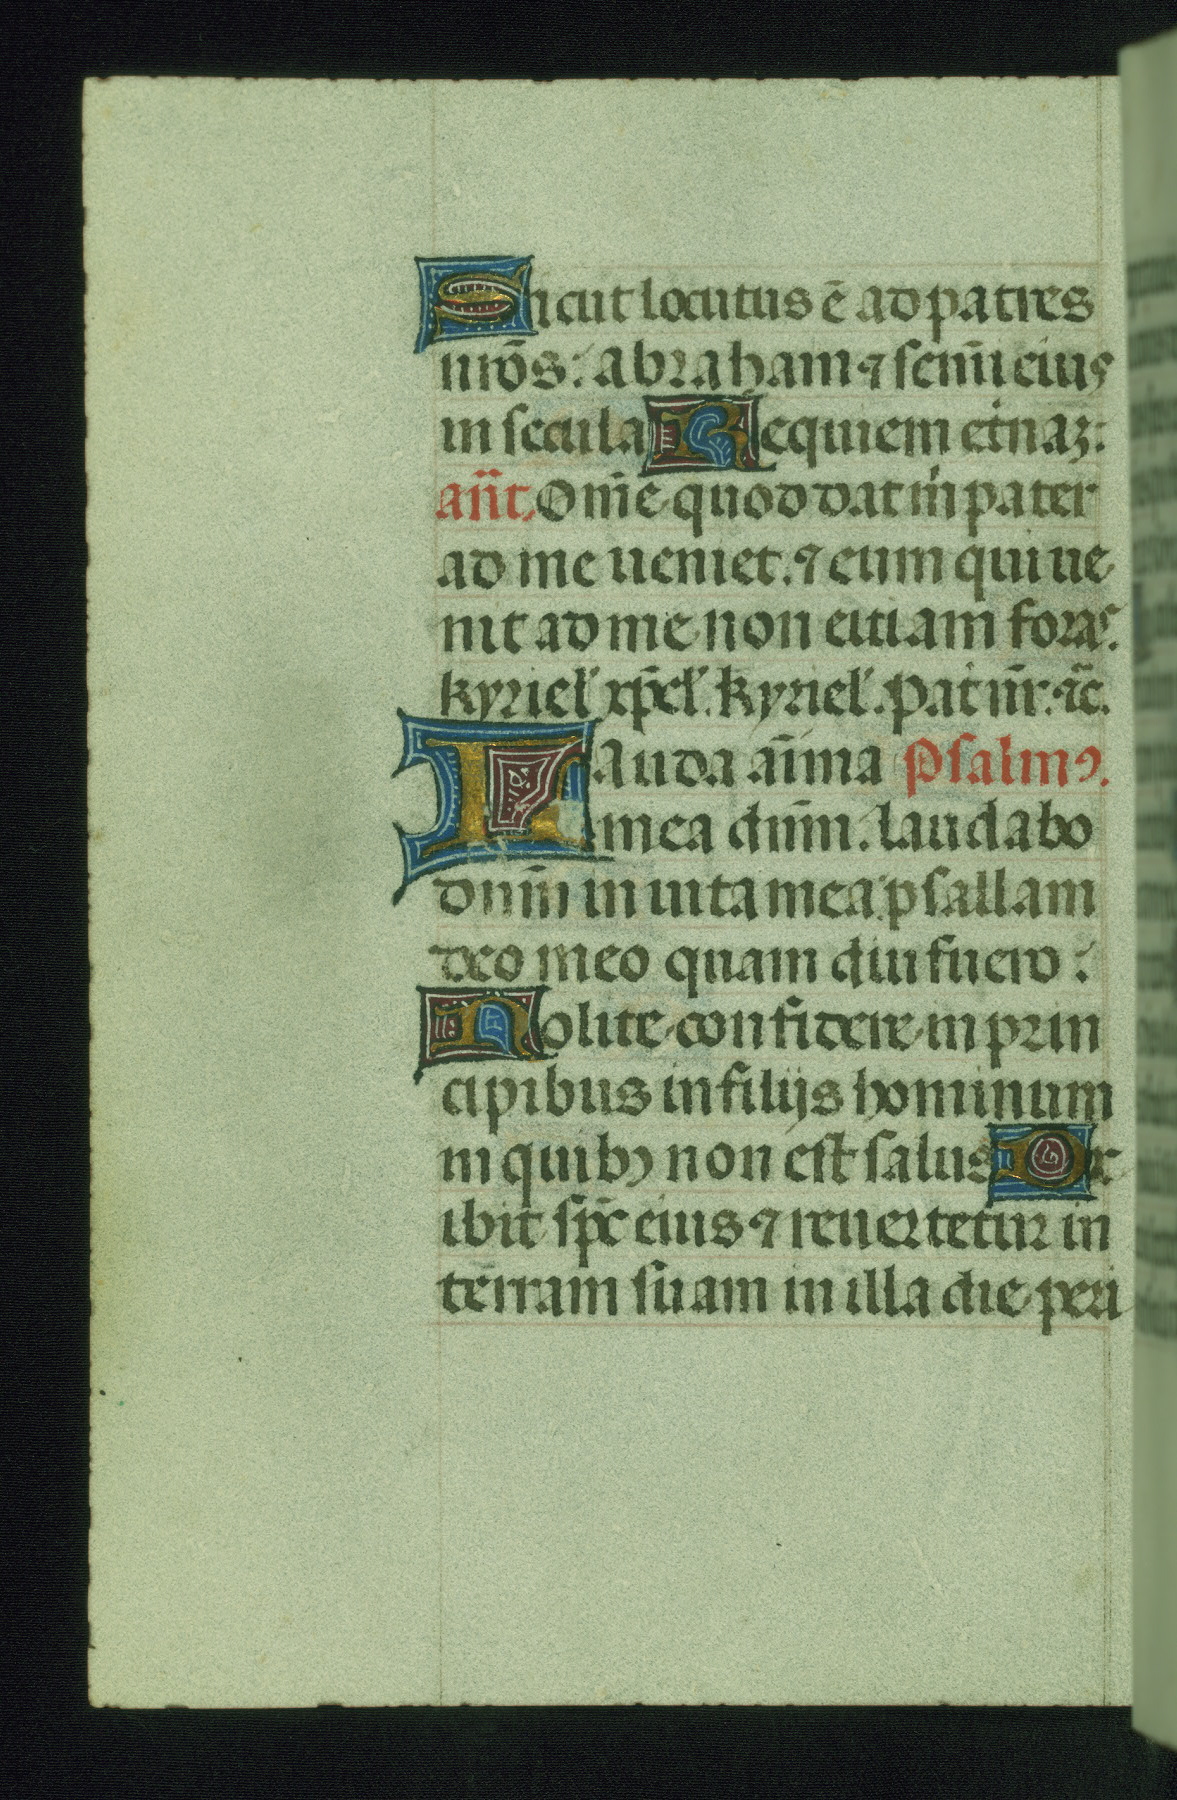 Sicut locutus ē ad patres
nr̄os: abraham ⁊ semīi eius
in secula Requiem et̄naꝫ:
an̄t. Om̄e quod dat m̄ pater
ad me ueniet. ⁊ eum qui ue
nit ad me non eitiam foras.
kyriel' xp̄el'. kyriel'. Pat̄ nr̄. ⁊c̄.
Lauda āīma Psalmꝯ.
mea dn̄m. laudabo
dnm̄ in uita mea: psallam
deo meo quam diu fuero:
Nolite confidere in prin
cipibus in filijs hominum
in quibꝫ non est salus Ex
ibit sp̄c eius ⁊ reuertetur in
terram suam in illa die peri